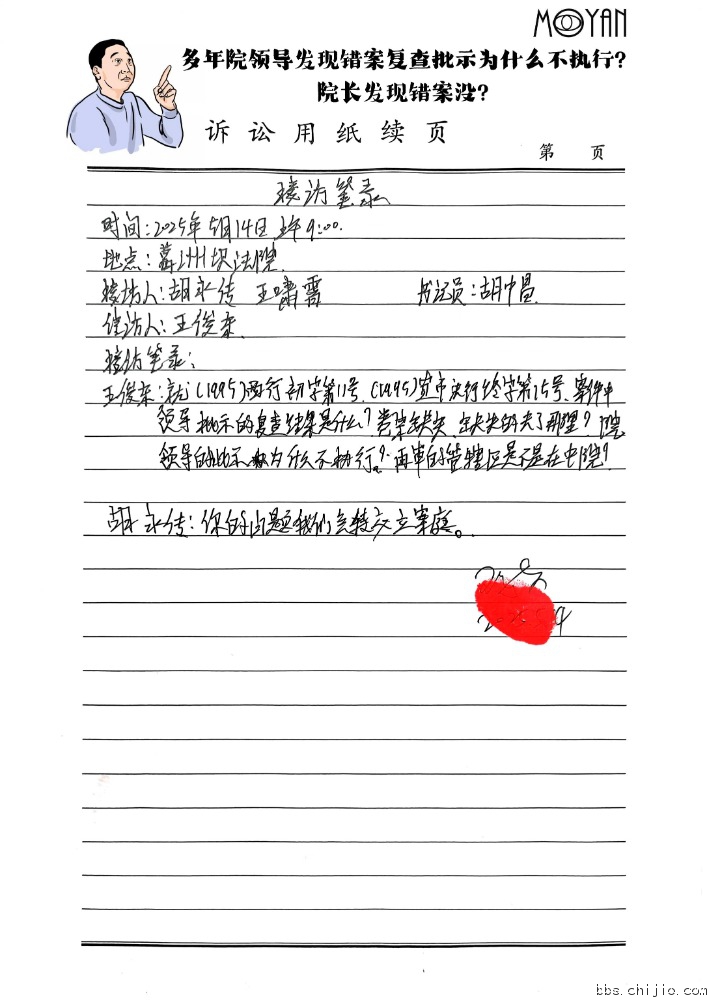 MOYAN
多年院领导发现错案复查批示为什么不执行?
院长发现错案没?
诉讼用纸续页
第 页
接访笔录
时间:2025年5月14日上午9:00.
地点:葛洲坝法院
接访人:胡永传 王啸霄 书记员:胡中昌
信访人:王俊荣
接访笔录:
王俊荣:就(1995)西行初字第11号、(1995)宜中法行终字第15号、案件中
领导批示的复查结果是什么?卷宗缺失、缺失的去了那里?院
领导的批示为什么不执行?再审的管辖区是不是在中院?
胡永传:你的问题我们会转交立案庭。
bbs.chijio.com